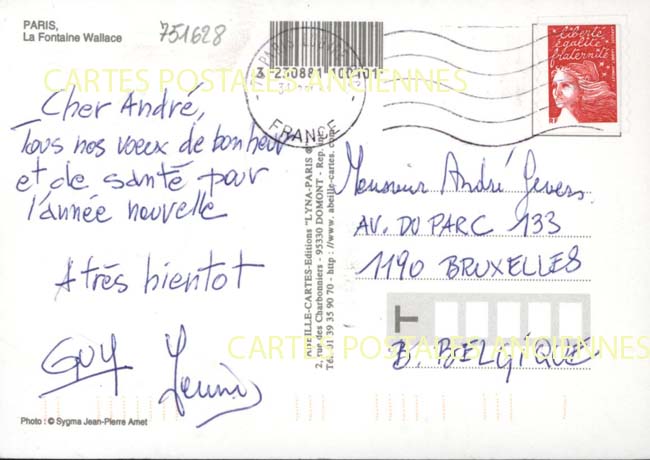 PARIS,
La Fontaine Wallace
751628
3 230881 00101
FRANCE
liberté
égalité
fraternité
CARTES POSTALES ANCIENNES
Cher André,
Tous nos voeux de bonheur
et de santé pour
l'année nouvelle
A très bientot
GUY
Monsieur André
AV. DU PARC 133
1190 BRUXELLES
B. BELGIQUE.
T
ABEILLE-CARTES-Editions "LYNA-PARIS"
2, rue des Charbonniers - 95330 DOMONT - Rep. int.
Tél. 01 39 35 90 70 - http://www.abeille-cartes.com
CARTES POSTALES ANCIENNES
Photo : © Sygma Jean-Pierre Amet